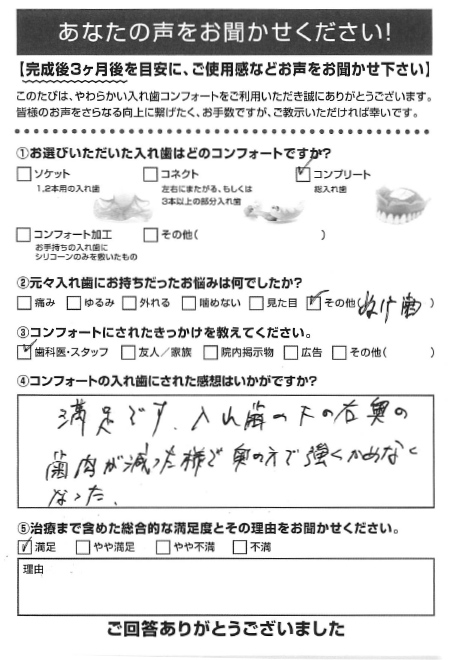 あなたの声をお聞かせください!
【完成後3ヶ月後を目安に、ご使用感などお声をお聞かせ下さい】
このたびは、やわらかい入れ歯コンフォートをご利用いただき誠にありがとうございます。
皆様のお声をさらなる向上に繋げたく、お手数ですが、ご教示いただければ幸いです。
①お選びいただいた入れ歯はどのコンフォートですか?
ソケット コネクト コンプリート
1,2本用の入れ歯 左右にまたがる、もしくは 総入れ歯
3本以上の部分入れ歯
コンフォート加工 その他( )
お手持ちの入れ歯に
シリコーンのみを敷いたもの
②元々入れ歯にお持ちだったお悩みは何でしたか?
痛み ゆるみ 外れる 噛めない 見た目 その他(ぬけ歯)
③コンフォートにされたきっかけを教えてください。
歯科医・スタッフ 友人/家族 院内掲示物 広告 その他( )
④コンフォートの入れ歯にされた感想はいかがですか?
満足です。入れ歯の下の右奥の
歯肉が減った様で奥の方で強くかめなく
なった。
⑤治療まで含めた総合的な満足度とその理由をお聞かせください。
満足 やや満足 やや不満 不満
理由
ご回答ありがとうございました